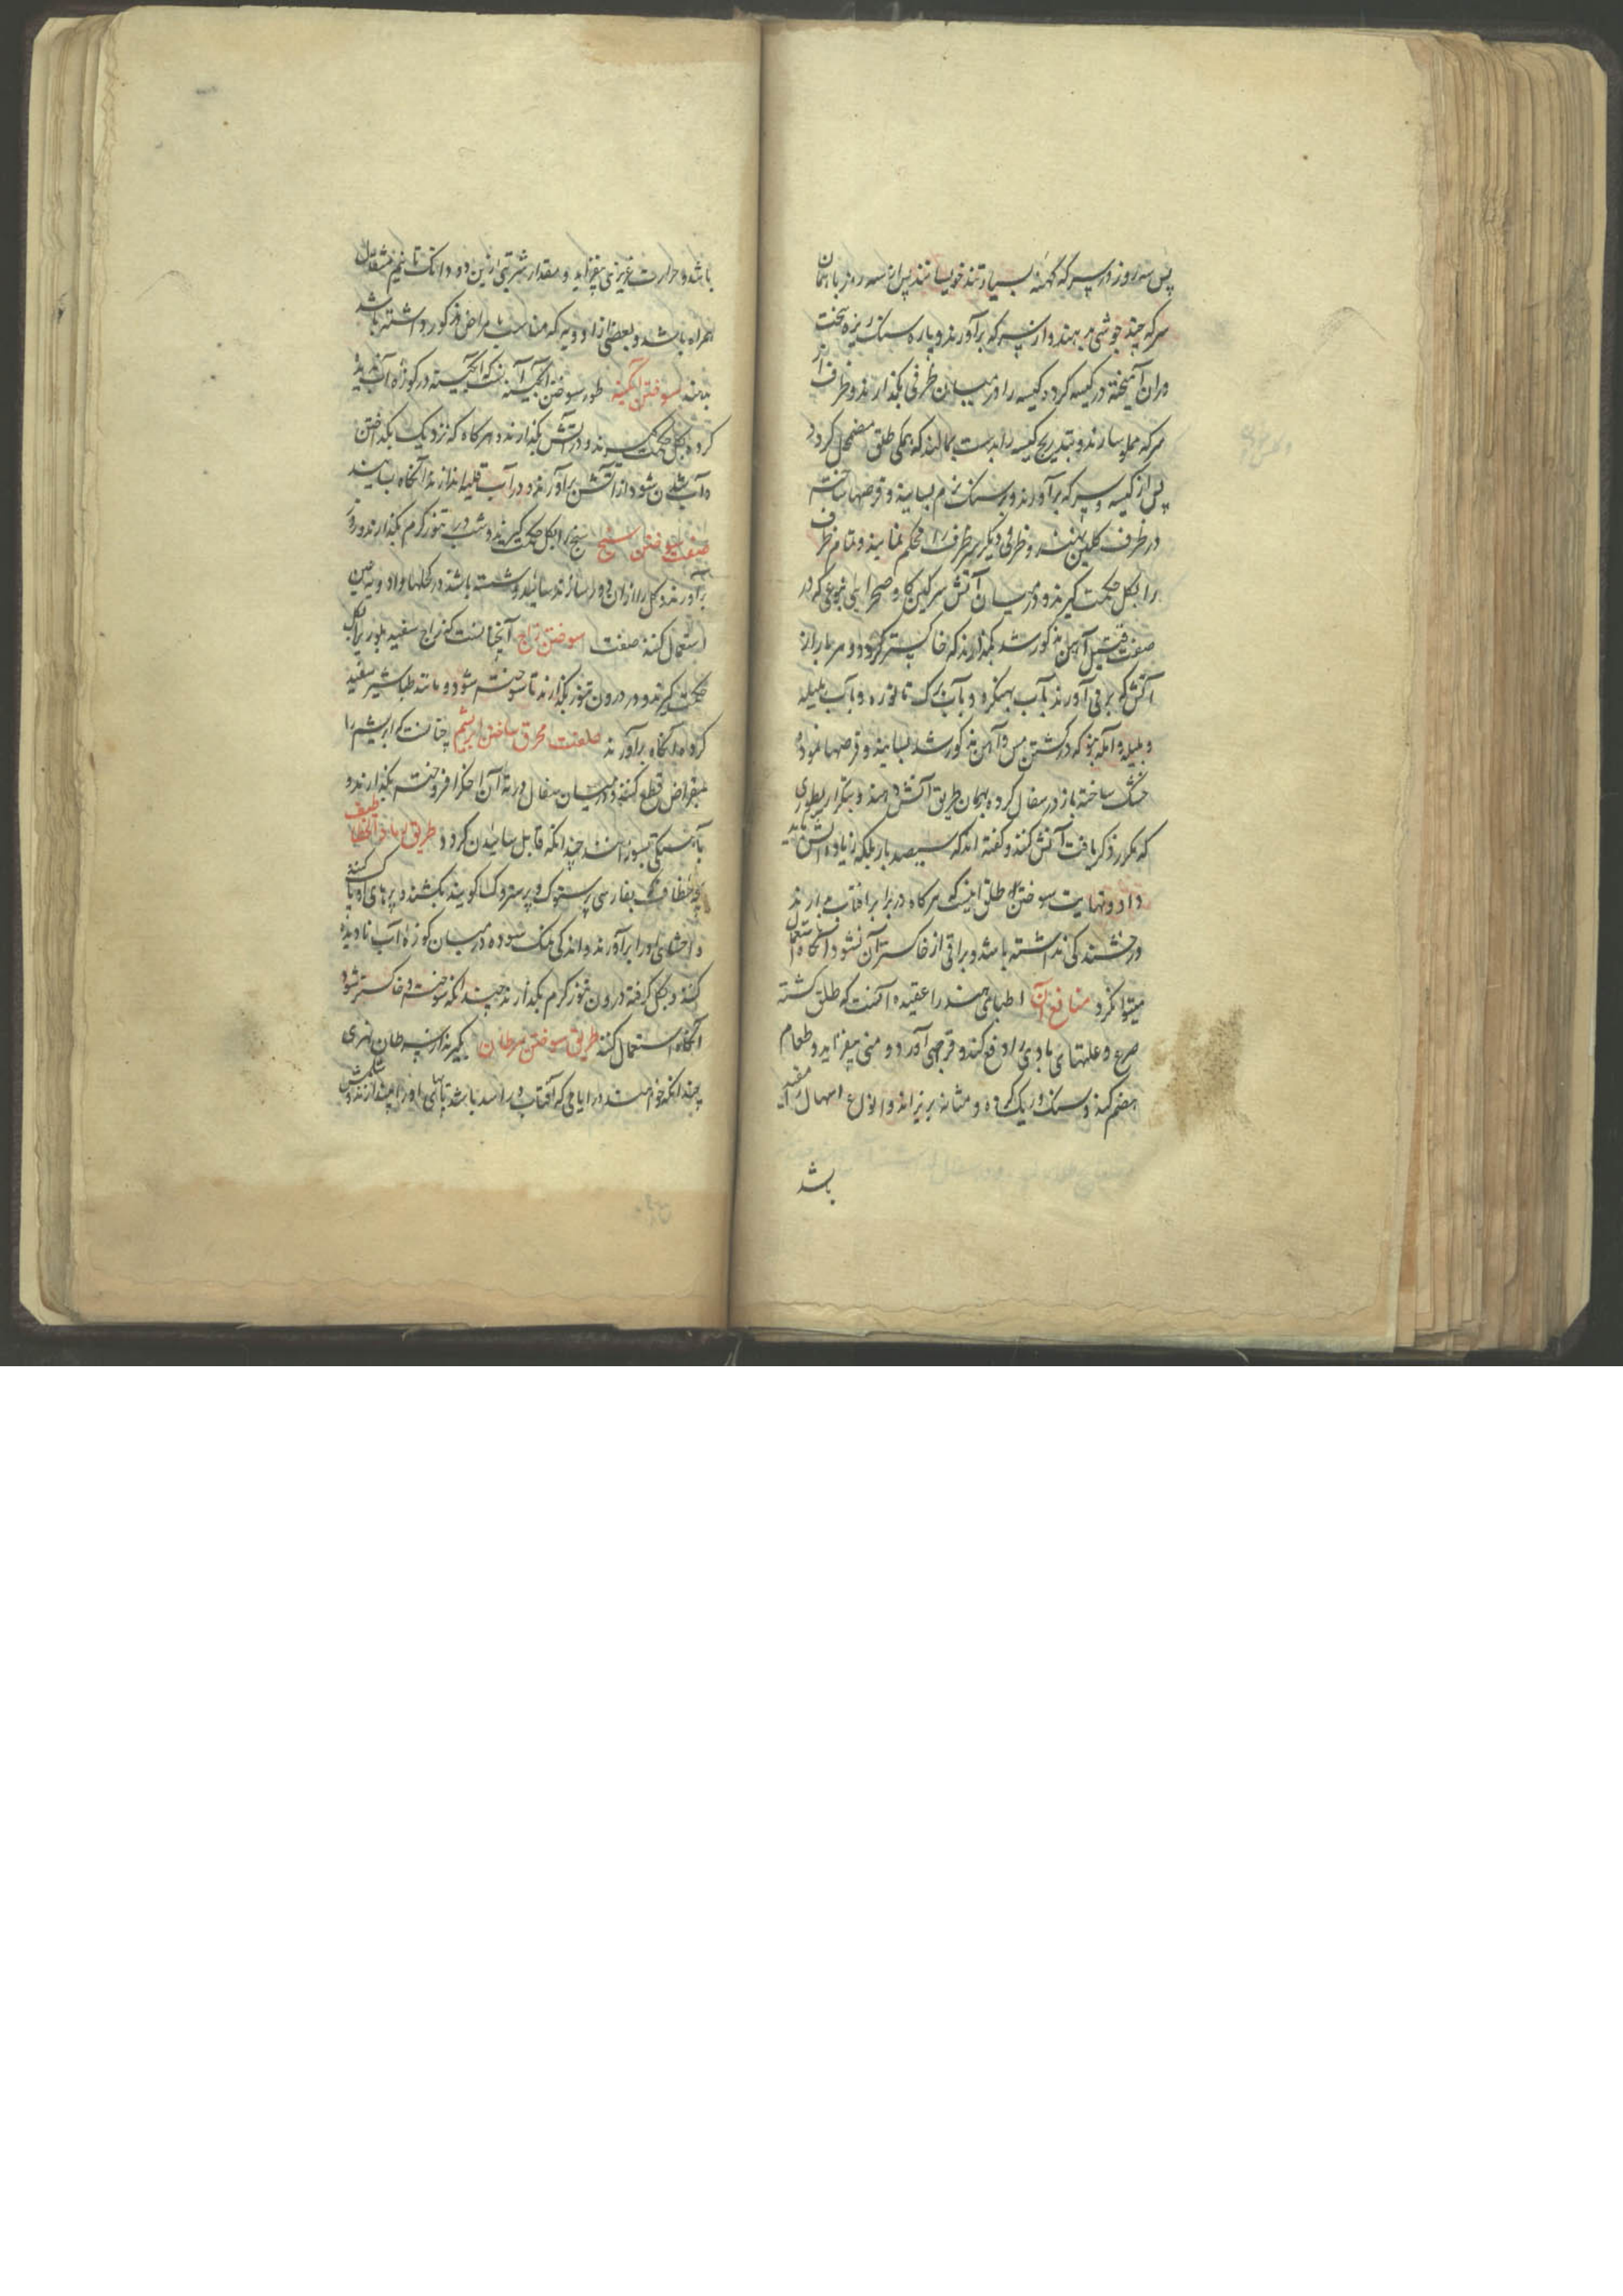 پس سه روز در سرکه کهنه بسیار تند خویسانند پس از سه روز با همان
سرکه چند جوشی بدهند و از سرکه برآورند و پاره سنک ریزه سخت
در آن آمیخته در کیسه کرده و کیسه را در میان ظرفی بگذارند و ظرف از
سرکه مملو سازند و بتدریج کیسه را بدست بمالند که همکی طلق مضمحل کردد
پس از کیسه و سرکه برآورند و بر سنک نرم بسایند و قرصها ساخته
در ظرف کلین نهند و ظرفی دیکر بر سر ظرف محکم نمایند و تمام ظرف
را بکل حکمت کیرند و در میان آتش سرکین کاو صحرایی بنوعی که در
صفت قتیل آهن مذکور شد بگذارند که خاکستر کردد و هر بار از
آتش که برمی آورند بآب بهنکره و بآب برک تانوره و بآب هلیله
و بلیله و آمله بنوعی که در کشتن مس و آهن مذکور شد بسایند و قرصها نموده
خشک ساخته باز در سفال کرده بهمان طریق آتش دهند و بتکرار بطوری
که مکرر ذکر یافت آتش کنند و کفته اند که سیصد بار بلکه زیاده آتش باید
داد و نهایت سوختن طلق اینست که هر کاه در برابر آفتاب بدارند
درخشندکی نداشته باشد و براقی از خاکستر آن نشود آنکاه استعمال
میتوان کرد منافع آن اطبای هند را عقیده آنست که طلق کشته
صرع و علتهای بادی را دفع کند و قرحی آورد و منی بیفزاید و طعام
هضم کند و سنک و ریک کرده و مثانه بریزاند و انواع اسهال را مفید
باشد
باشد و حرارت غریزی بیفزاید و مقدار شربتی ازین دو دانک تا نیم مثقال
همراه باشد و بعضی از ادویه که مناسب امراض مذکور داشته باشد
بدهند سوختن آبکینه طور سوختن آبکینه آنست که آبکینه در کوزه آب ندیده
کرده بکل حکمت کیرند و در آتش بگذارند و هر کاه که نزدیک بگداختن
و آب شدن شود از آتش برآورند و در آب قلیا اندازند آنکاه بسایند
صفت سوختن بسد را بکل حکمت کیرند و شب در تنور کرم بگذارند و روز
برآورند و کل را از آن دور سازند سائیده و شسته باشند در کحلها و ادویه عین
استعمال کنند صفت سوختن زجاج آنچنانست که زجاج سفید بلوری را بکل
حکمت کیرند و در درون تنور بگذارند تا سوخته شود و مانند طباشیر سفید
کردد آنکاه برآورند صفت محرق ساختن ابریشم چنانست که ابریشم را
بمقراض قطع کنند و در میان سفال و در ته آن اخکر افروخته بگذارند و
بآهستکی بسوزانند چندانکه قابل سائیدن کردد طریق رماد الخطاطیف
بچه خطاف که بفارسی پرستوک و پرستو کسا کویند بکشند و پرهای او پاک کنند
و احشای او را برآورند و اندکی نمک سوده در میان کوزه آب نادیده
کنند و بکل کرفته درون تنور کرم بگذارند چندانکه سوخته و خاکستر شود
آنکاه استعمال کنند طریق سوختن سرطان بکیرند از سرطان نهری
چندانکه خواهند در ایامی که آفتاب در اسد باشد پاهای او را بیندازند و شکمش